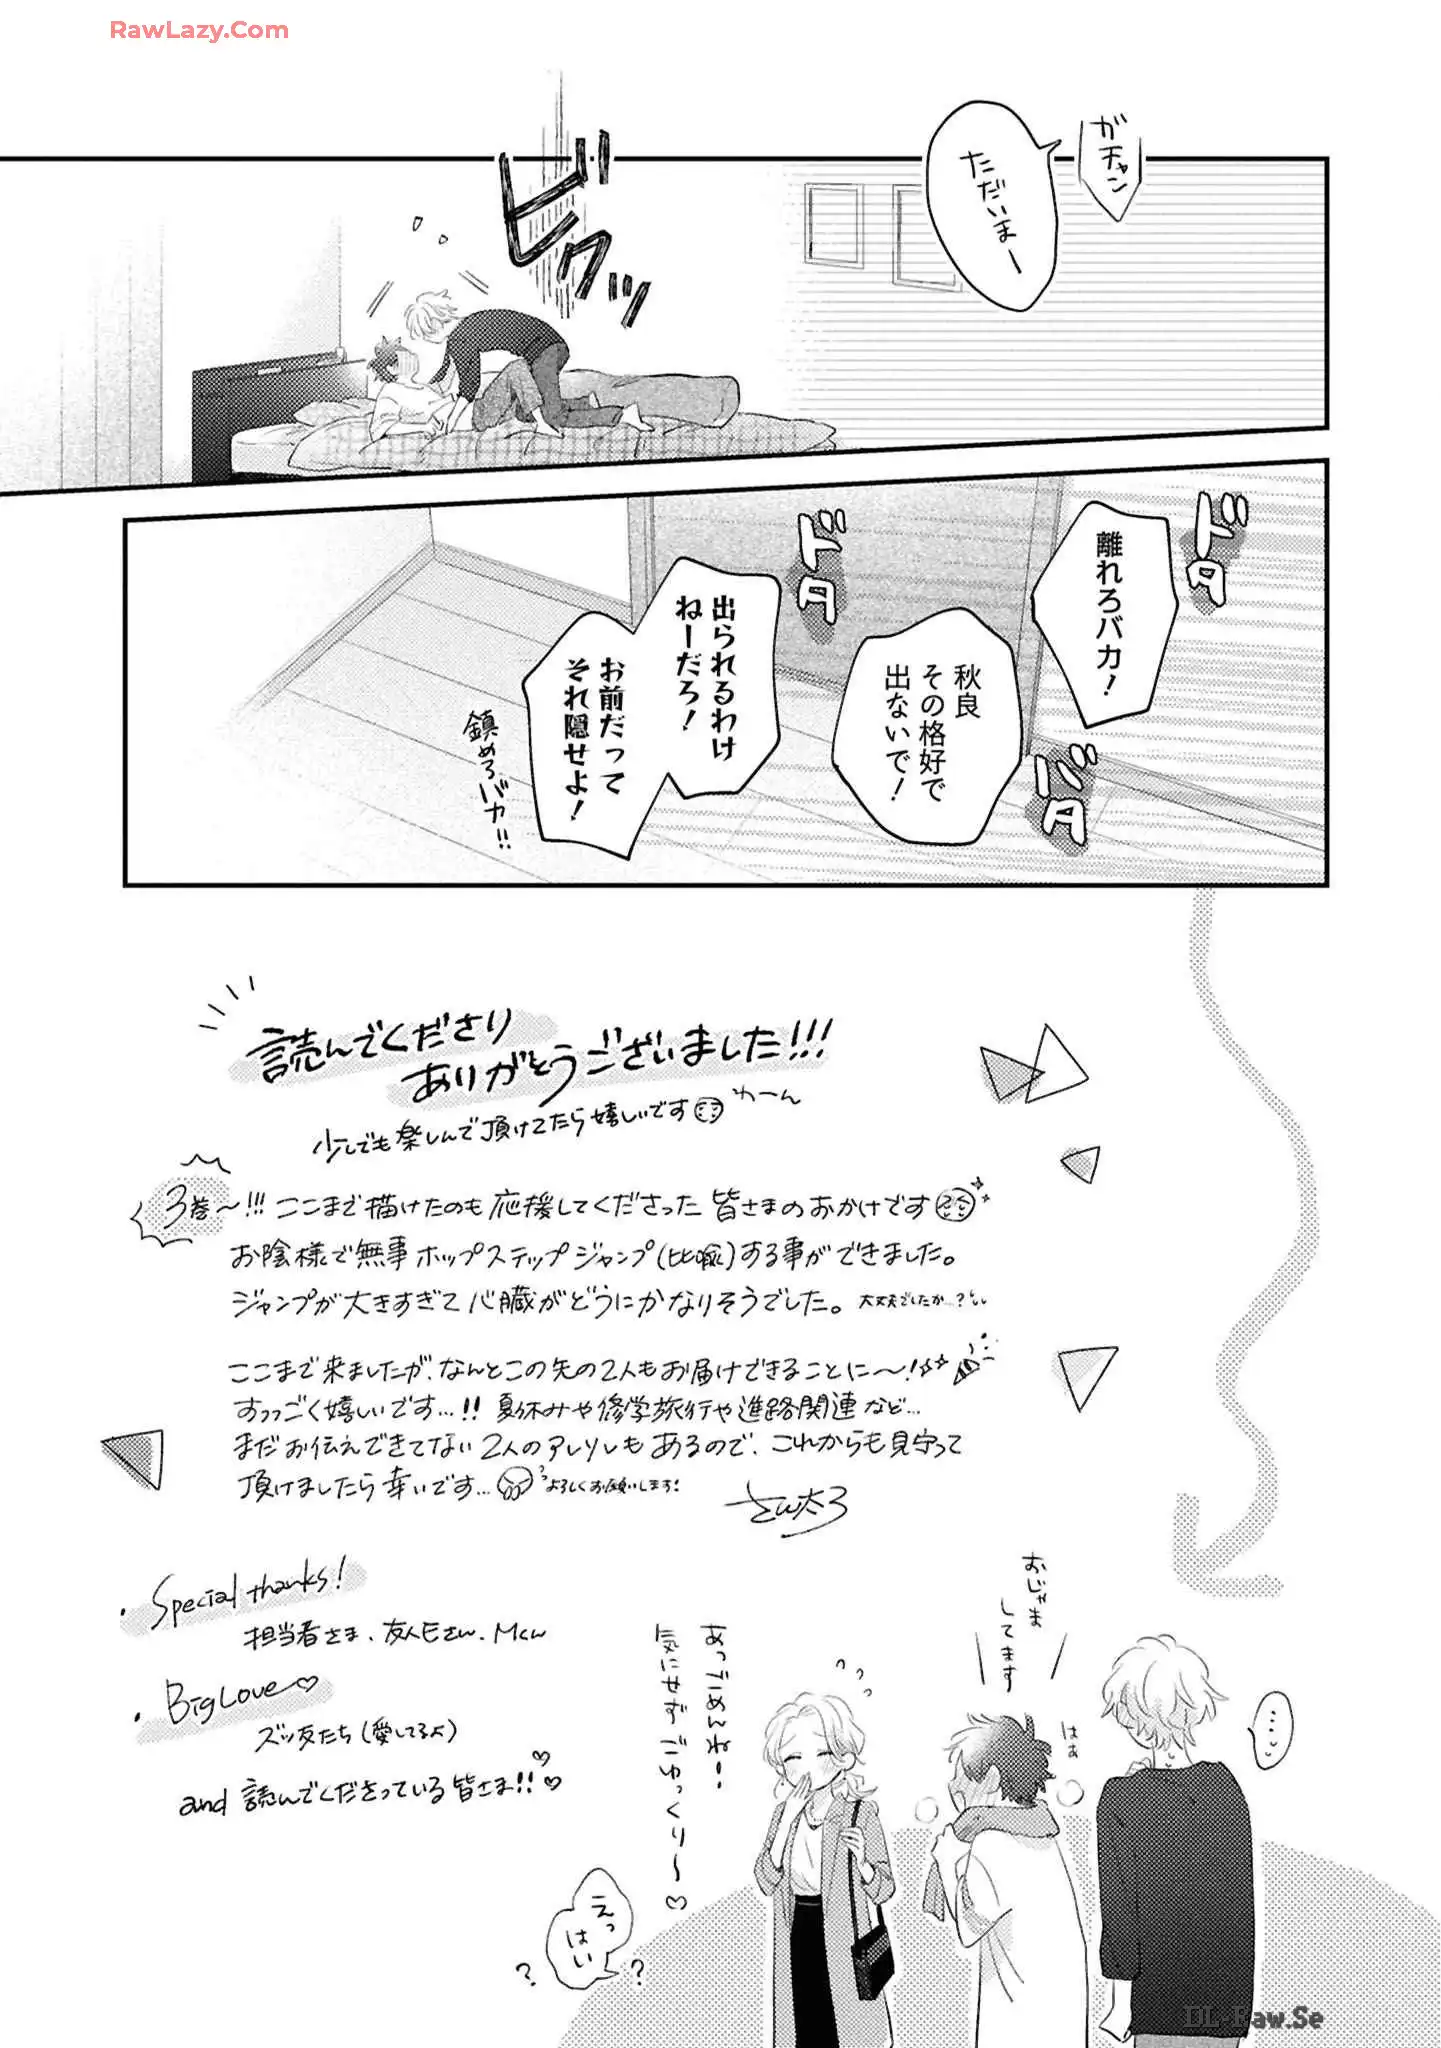 RawLazy.Com
ガチャン
ただいまー
ビクッ
離れろバカ！
ドタ
秋良
その格好で
出ないで！
ドタ
ドタ
出られるわけ
ねーだろ！
お前だって
それ隠せよ！
鎮めろバカ!!
読んでくださり
ありがとうございました!!!
少しでも楽しんで頂けてたら嬉しいです わーん
3巻〜!!! ここまで描けたのも応援してくださった皆さまのおかげです
お陰様で無事ホップステップジャンプ(比喩)する事ができました。
ジャンプが大きすぎて心臓がどうにかなりそうでした。大丈夫でしたか…？
ここまで来ましたが、なんとこの先の2人もお届けできることに〜！
すっっごく嬉しいです…!! 夏休みや修学旅行や進路関連など…
まだお伝えできてない2人のアレソレもあるので、これからも見守って
頂けましたら幸いです… よろしくお願いします！
さん太ろ
・Special thanks!
担当者さま、友人Eさん、Mくん
・Big Love♡
ズッ友たち(愛してるよ)
and 読んでくださっている皆さま!!♡♡
おじゃま
してます
はぁ
あっごめんねー
気にせずごゆっくり〜♡
えっ
はい
? ?
……
DL-Raw.Se